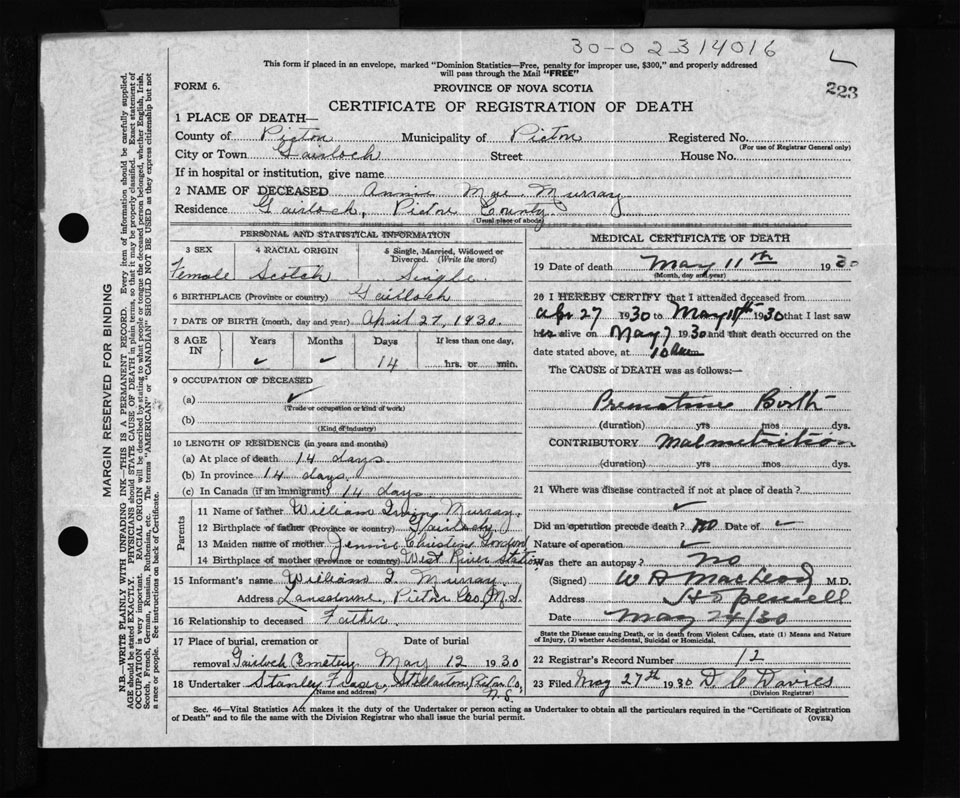 30-0 2 314016
This form if placed in an envelope, marked "Dominion Statistics—Free, penalty for improper use, $300," and properly addressed
will pass through the Mail "FREE"
223
FORM 6.
PROVINCE OF NOVA SCOTIA
CERTIFICATE OF REGISTRATION OF DEATH
1 PLACE OF DEATH—
County of Pictou Municipality of Pictou Registered No.
(For use of Registrar General only)
City or Town Gairloch Street House No.
If in hospital or institution, give name
2 NAME OF DECEASED Annie Mae Murray
Residence Gairloch, Pictou County
(Usual place of abode)
PERSONAL AND STATISTICAL INFORMATION
3 SEX 4 RACIAL ORIGIN 5 Single, Married, Widowed or Divorced. (Write the word)
Female Scotch Single
6 BIRTHPLACE (Province or country) Gairloch
7 DATE OF BIRTH (month, day and year) April 27, 1930.
8 AGE IN Years Months Days If less than one day,
✓ ✓ 14 hrs. or min.
9 OCCUPATION OF DECEASED
(a) ✓
(Trade or occupation or kind of work)
(b)
(Kind of industry)
10 LENGTH OF RESIDENCE (in years and months)
(a) At place of death 14 days
(b) In province 14 days.
(c) In Canada (if an immigrant) 14 days
Parents
11 Name of father William Irving Murray.
12 Birthplace of father (Province or country) Gairloch
13 Maiden name of mother Jennie Christen
14 Birthplace of mother (Province or country) West River Station
15 Informant's name William I. Murray.
Address Lansdowne, Pictou Co., N.S.
16 Relationship to deceased Father.
17 Place of burial, cremation or Date of burial
removal Gairloch Cemetery May 12 1930
18 Undertaker Stanley Fraser, Stellarton, Pictou Co, N.S.
(Name and address)
MEDICAL CERTIFICATE OF DEATH
19 Date of death May 11th 1930
(Month, day and year)
20 I HEREBY CERTIFY that I attended deceased from
Apr 27 1930 to May 11th 1930 that I last saw
alive on May 7 1930 and that death occurred on
date stated above, at 10
The CAUSE of DEATH was as follows:—
Premature Birth
(duration) yrs mos dys.
CONTRIBUTORY Malnutrition
(duration) yrs mos dys.
21 Where was disease contracted if not at place of death?
✓
Did an operation precede death? No Date of ✓
Nature of operation ✓
Was there an autopsy? No
(Signed) W A MacLeod M.D.
Address Hopewell
Date May 24/30
State the Disease causing Death, or in death from Violent Causes, state (1) Means and Nature
of Injury, (2) whether Accidental, Suicidal or Homicidal.
22 Registrar's Record Number 12
23 Filed May 27th 1930 D C Davies
(Division Registrar)
Sec. 46—Vital Statistics Act makes it the duty of the Undertaker or person acting as Undertaker to obtain all the particulars required in the "Certificate of Registration
of Death" and to file the same with the Division Registrar who shall issue the burial permit.
(OVER)
MARGIN RESERVED FOR BINDING
N.B.—WRITE PLAINLY WITH UNFADING INK—THIS IS A PERMANENT RECORD. Every item of information should be carefully supplied.
AGE should be stated EXACTLY. PHYSICIANS should STATE CAUSE OF DEATH in plain terms, so that it may be properly classified. Exact statement of
OCCUPATION is very important. RACIAL ORIGIN will be described by stating to what people or tongue the deceased person belonged, whether English, Irish,
Scotch, French, German, Russian, Ruthenian, etc. The terms "AMERICAN" or "CANADIAN" SHOULD NOT BE USED as they express citizenship but not
a race or people. See instructions on back of Certificate.